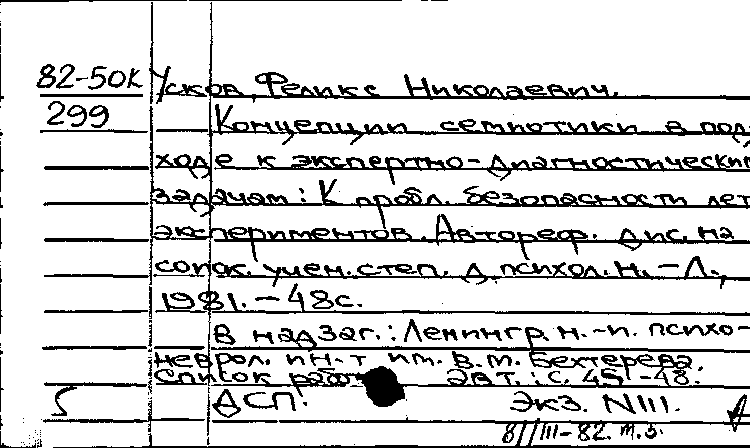 82-50К Усков, Феликс Николаевич.
299 Концепции семиотики в под-
ходе к экспертно-диагностическим
задачам: К пробл. безопасности лет.
экспериментов. Автореф. дис. на
соиск. учен. степ. д. психол. н. - Л.,
1981. - 48 с.
В надзаг.: Ленингр. н.-и. психо-
неврол. ин-т им. В.М. Бехтерева.
Список работ авт.: с. 45-48.
5 ДСП. Экз. N111.
8/III-82. т.з.